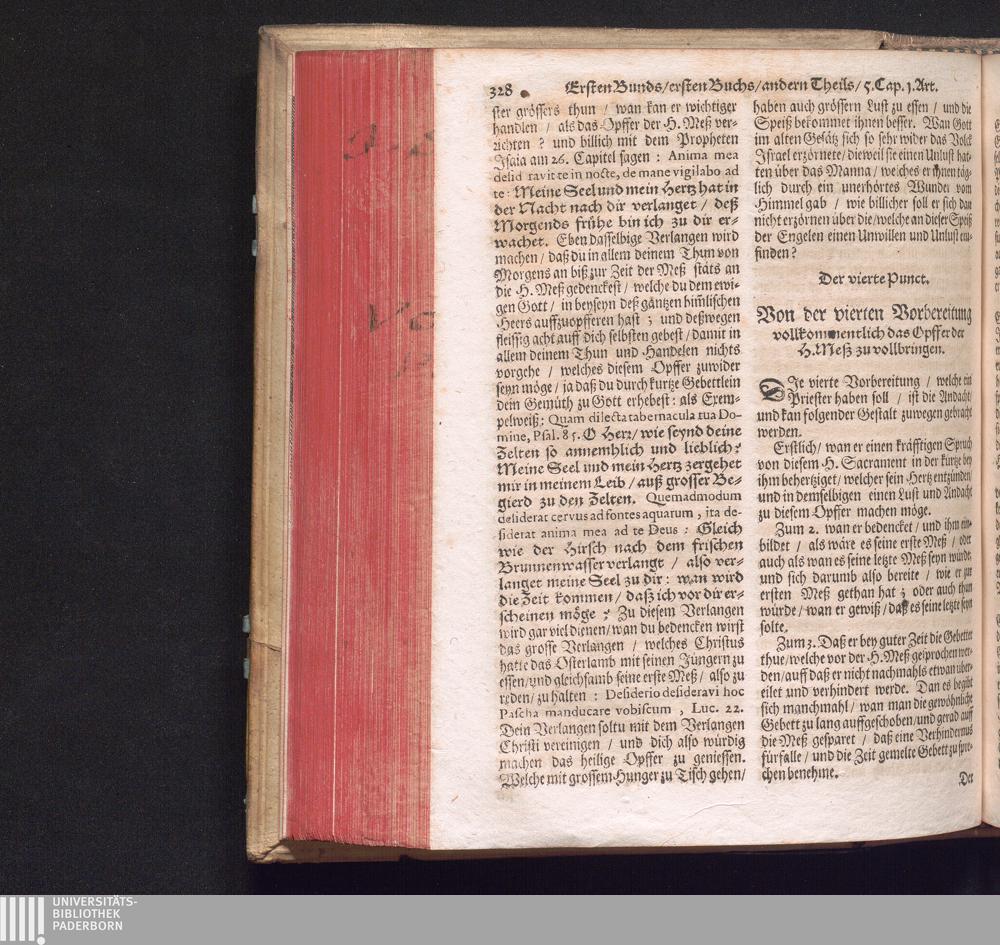 328 Ersten Bunds/ersten Buchs/andern Theils/5.Cap.1.Art.
ster grössers thun / wan kan er wichtiger
handlen / als das Opffer der H. Meß ver-
richten ? und billich mit dem Propheten
Isaia am 26. Capitel sagen : Anima mea
desideravit te in nocte, de mane vigilabo ad
te : Meine Seel und mein Hertz hat in
der Nacht nach dir verlanget / deß
Morgends frühe bin ich zu dir er-
wachet. Eben dasselbige Verlangen wird
machen / daß du in allem deinem Thun von
Morgens an biß zur Zeit der Meß stäts an
die H. Meß gedenckest / welche du dem ewi-
gen Gott / in beyseyn deß gäntzen himlischen
Heers auffzuopfferen hast ; und deßwegen
fleissig acht auff dich selbsten gebest / damit in
allem deinem Thun und Handelen nichts
vorgehe / welches diesem Opffer zuwider
seyn möge / ja daß du durch kurtze Gebettlein
dein Gemüth zu Gott erhebest : als Exem-
pelweiß : Quam dilecta tabernacula tua Do-
mine, Psal. 85. O Herr/ wie seynd deine
Zelten so annemhlich und lieblich?
Meine Seel und mein Hertz zergehet
mir in meinem Leib / auß grosser Be-
gierd zu den Zelten. Quemadmodum
desiderat cervus ad fontes aquarum , ita de-
siderat anima mea ad te Deus : Gleich
wie der Hirsch nach dem frischen
Brunnenwasser verlangt / also ver-
langet meine Seel zu dir : wan wird
die Zeit kommen / daß ich vor dir er-
scheinen möge ? Zu diesem Verlangen
wird gar viel dienen/wan du bedencken wirst
das grosse Verlangen / welches Christus
hatte das Osterlamb mit seinen Jüngern zu
essen/und gleichsamb seine erste Meß / also zu
reden/ zu halten : Desiderio desideravi hoc
Pascha manducare vobiscum , Luc. 22.
Dein Verlangen soltu mit dem Verlangen
Christi vereinigen / und dich also würdig
machen das heilige Opffer zu geniessen.
Welche mit grossem Hunger zu Tisch gehen/
haben auch grössern Lust zu essen / und die
Speiß bekommet ihnen besser. Wan Gott
im alten Gesätz sich so sehr wider das Volck
Israel erzörnete/ dieweil sie einen Unlust hat-
ten über das Manna / welches er ihnen täg-
lich durch ein unerhörtes Wunder vom
Himmel gab / wie billicher soll er sich dan
nicht erzörnen über die/welche an dieser Speiß
der Engelen einen Unwillen und Unlust em-
finden?
Der vierte Punct.
Von der vierten Vorbereitung
vollkommentlich das Opffer der
H. Meß zu vollbringen.
Die vierte Vorbereitung / welche ein
Priester haben soll / ist die Andacht/
und kan folgender Gestalt zuwegen gebracht
werden.
Erstlich/ wan er einen kräfftigen Spruch
von diesem H. Sacrament in der kurtze bey
ihm behertziget/ welcher sein Hertz entzünden/
und in demselbigen einen Lust und Andacht
zu diesem Opffer machen möge.
Zum 2. wan er bedencket/ und ihm ein-
bildet / als wäre es seine erste Meß / oder
auch als wan es seine letzte Meß seyn würde,
und sich darumb also bereite / wie er zur
ersten Meß gethan hat ; oder auch thun
würde/ wan er gewiß/ daß es seine letzte seyn
solte.
Zum 3. Daß er bey guter Zeit die Gebetter
thue/welche vor der H. Meß gesprochen wer-
den/auff daß er nicht nachmahls etwan uber-
eilet und verhindert werde. Dan es begibt
sich manchmahl/ wan man die gewöhnliche
Gebett zu lang auffgeschoben/und gerad auff
die Meß gesparet / daß eine Verhindernus
fürfalle / und die Zeit gemelte Gebett zu spre-
chen benehme.
Der
UNIVERSITÄTS-
BIBLIOTHEK
PADERBORN